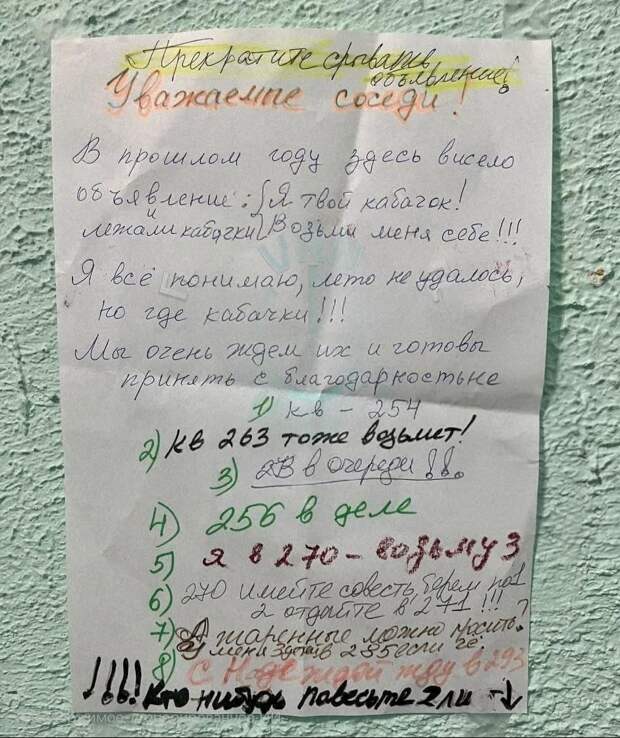 Прекратите срывать
объявление!
Уважаемые соседи!
В прошлом году здесь висело
объявление: Я твой кабачок!
и лежали кабачки Возьми меня себе!!!
Я всё понимаю, лето не удалось,
но где кабачки!!!
Мы очень ждем их и готовы
принять с благодарностью
1) кв - 254
2) кв 263 тоже возьмет!
3) в очереди!!!
4) 256 в деле
5) Я в 270 - возьму 3
6) 270 имейте совесть берем по 1
2 отдайте в 271!!!
7) А жаренные можно носить?
У меня в 235 если че.
8) С Надеждой жду в 293
!!!! Кто-нибудь павесьте 2 ли